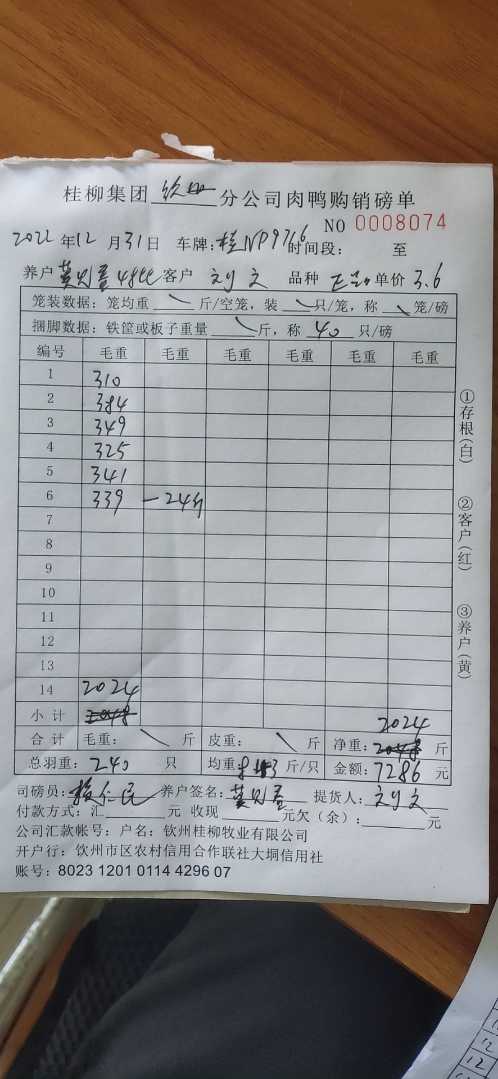 桂柳集团 钦州 分公司肉鸭购销磅单
NO 0008074
2022 年 12 月 31 日 车牌: 桂NP9766 时间段: 至
养户 客户 刘文 品种 单价 3.6
笼装数据: 笼均重 斤/空笼, 装 只/笼, 称 笼/磅
捆脚数据: 铁筐或板子重量 斤, 称 40 只/磅
编号 毛重 毛重 毛重 毛重 毛重 毛重
1 310
2 384
3 349
4 325
5 341
6 339 -24斤
7
8
9
10
11
12
13
14 2024
小计 2048
2024
合计 毛重: 斤 皮重: 斤 净重: 2048 斤
总羽重: 240 只 均重: 斤/只 金额: 7286 元
司磅员: 养户签名: 提货人: 刘文
付款方式: 汇 元 收现 元欠(余): 元
公司汇款帐号: 户名: 钦州桂柳牧业有限公司
开户行: 钦州市区农村信用合作联社大垌信用社
账号: 8023 1201 0114 4296 07
①存根(白)
②客户(红)
③养户(黄)
12
12